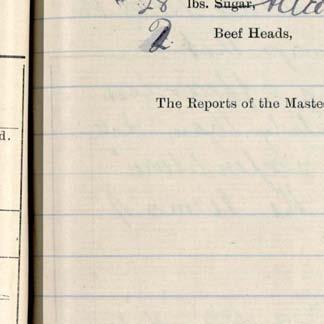 28 lbs. Sugar,
2 Beef Heads,
The Reports of the Maste
d.